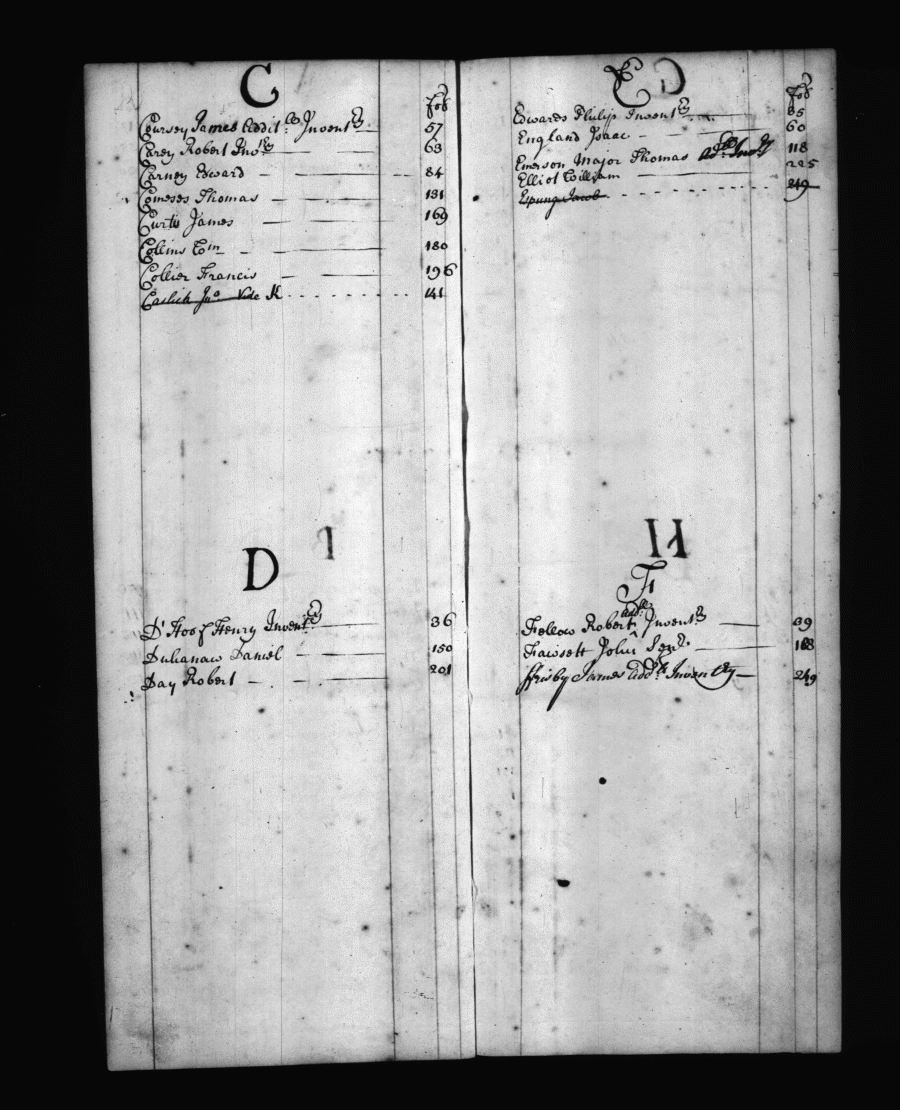 C
Fo:
Coursey James Addit:ll Inventry 57
Carey Robert Invty 63
Carney Edward 84
Comeses Thomas 131
Curtis James 169
Collins Wm 180
Collier Francis 196
Caslick Jao Vide K 141
D
D'Hoof Henry Inventry 36
Dulianaw Daniel 150
Day Robert 201
E
Fo:
Edwards Philip Inventry 35
England Isaac 60
Emerson Major Thomas add Invty 118
Elliot William 225
Espung Jacob 249
F
Fellow Robert addll Inventry 39
Fawsett John Senr 188
ffrisby James Addll Inventry 249